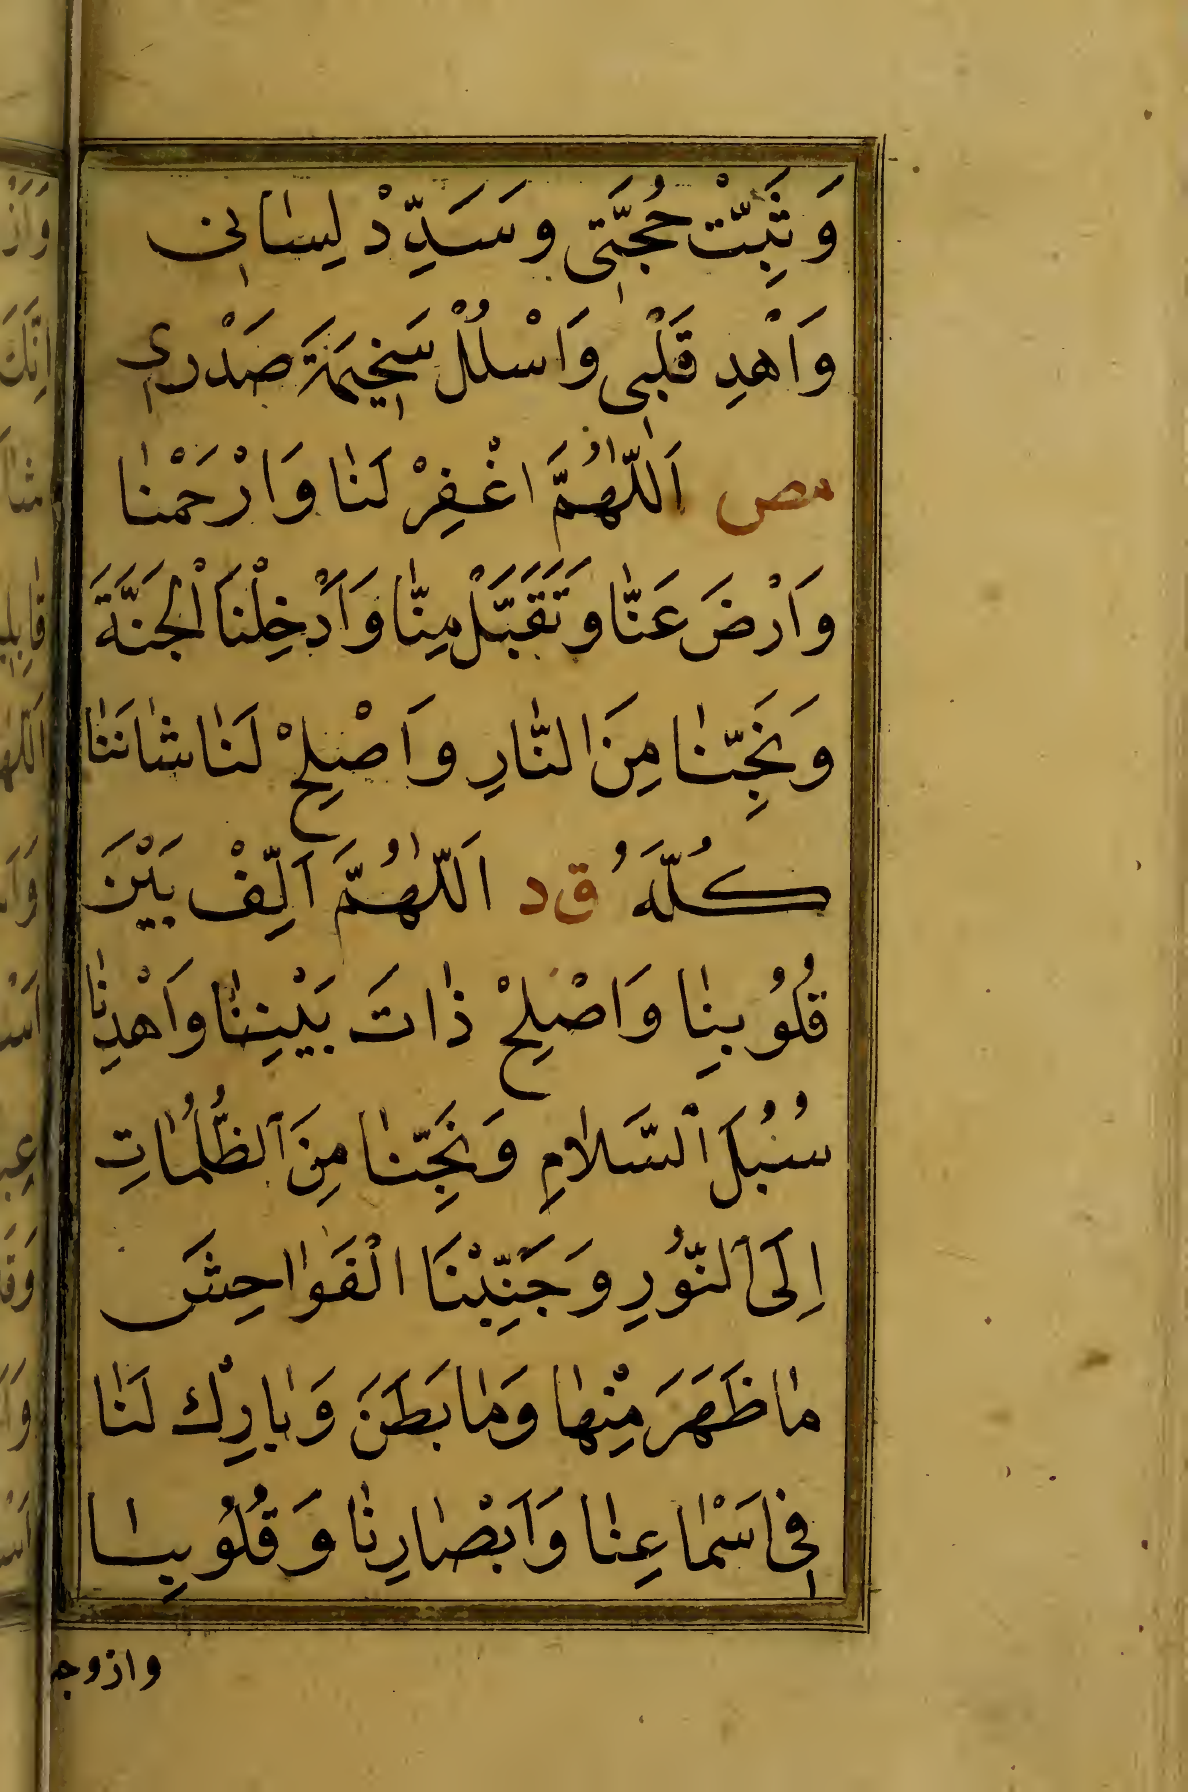 وَثَبِّتْ حُجَّتِي وَسَدِّدْ لِسَانِي
وَاهْدِ قَلْبِي وَاسْلُلْ سَخِيمَةَ صَدْرِي
مص اَللّٰهُمَّ اغْفِرْ لَنَا وَارْحَمْنَا
وَارْضَ عَنَّا وَتَقَبَّلْ مِنَّا وَاَدْخِلْنَا الْجَنَّةَ
وَنَجِّنَا مِنَ النَّارِ وَاَصْلِحْ لَنَا شَانَنَا
كُلَّهُ ق د اَللّٰهُمَّ اَلِّفْ بَيْنَ
قُلُوبِنَا وَاَصْلِحْ ذَاتَ بَيْنِنَا وَاهْدِنَا
سُبُلَ السَّلَامِ وَنَجِّنَا مِنَ الظُّلُمَاتِ
اِلَى النُّورِ وَجَنِّبْنَا الْفَوَاحِشَ
مَا ظَهَرَ مِنْهَا وَمَا بَطَنَ وَبَارِكْ لَنَا
فِي اَسْمَاعِنَا وَاَبْصَارِنَا وَقُلُوبِنَا
وازوجـ